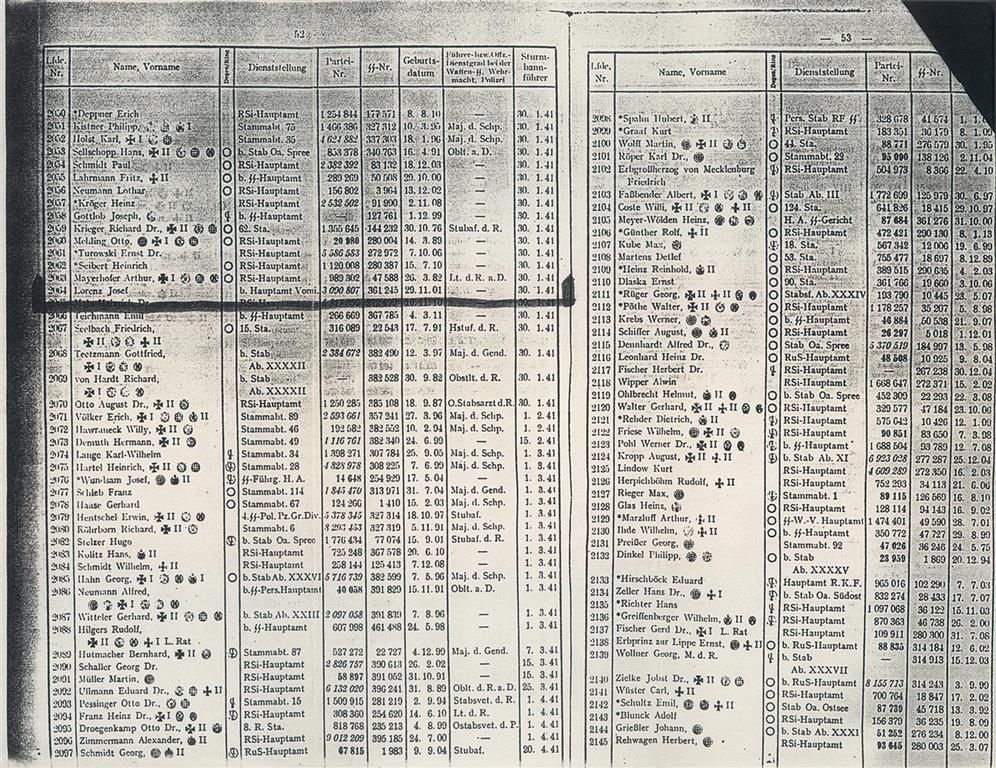 52
Lfde. Nr. Name, Vorname Dienststellung Partei-Nr. ᛋᛋ-Nr. Geburts-datum Führer- bzw. Offz.-Dienstgrad bei der Waffen-ᛋᛋ, Wehrmacht, Polizei Sturmbannführer
2050 *Deppner Erich RSi-Hauptamt 1 254 844 177 571 8. 8. 10 — 30. 1. 41
2051 Kistner Philipp, I Stammabt. 75 1 466 386 327 312 10. 3. 95 Maj. d. Schp. 30. 1. 41
2052 Holst Karl, I Stammabt. 35 4 624 882 337 303 18. 1. 96 Maj. d. Schp. 30. 1. 41
2053 Sellschopp Hans, II b. Stab Oa. Spree 853 378 340 763 16. 4. 91 Oblt. a. D. 30. 1. 41
2054 Schmidt Paul RSi-Hauptamt 2 382 392 83 132 18. 12. 03 — 30. 1. 41
2055 Lahrmann Fritz, II b. ᛋᛋ-Hauptamt 289 269 50 508 29. 10. 00 — 30. 1. 41
2056 Neumann Lothar RSi-Hauptamt 156 802 3 964 13. 12. 02 — 30. 1. 41
2057 *Kröger Heinz RSi-Hauptamt 2 532 502 91 990 2. 11. 08 — 30. 1. 41
2058 Gottlob Joseph, b. ᛋᛋ-Hauptamt 127 761 1. 12. 99 — 30. 1. 41
2059 Krieger Richard Dr., II 62. Sta. 1 355 645 144 232 30. 10. 76 Stubaf. d. R. 30. 1. 41
2060 Melding Otto, I RSi-Hauptamt 20 980 280 004 14. 3. 89 — 30. 1. 41
2061 *Turowski Ernst Dr. RSi-Hauptamt 3 586 553 272 972 7. 10. 06 — 30. 1. 41
2062 *Seibert Heinrich RSi-Hauptamt 1 120 008 280 387 15. 7. 10 — 30. 1. 41
2063 Mayerhofer Arthur, I RSi-Hauptamt 989 302 47 588 26. 3. 82 Lt. d. R. a. D. 30. 1. 41
2064 Lorenz Josef b. Hauptamt Vomi. 3 090 807 361 245 29. 11. 01 — 30. 1. 41
2066 Teichmann Emil b. ᛋᛋ-Hauptamt 266 669 367 785 4. 3. 11 — 30. 1. 41
2067 Seelbach Friedrich, II 15. Sta. 316 089 22 543 17. 7. 91 Hstuf. d. R. 30. 1. 41
2068 Teetzmann Gottfried, I b. Stab Ab. XXXXII 2 384 672 382 490 12. 3. 97 Maj. d. Gend. 30. 1. 41
2069 von Hardt Richard, I b. Stab Ab. XXXXII — 382 528 30. 9. 82 Obstlt. d. R. 30. 1. 41
2070 Otto August Dr., II RSi-Hauptamt 1 250 285 385 108 18. 9. 87 O.Stabsarzt d.R. 30. 1. 41
2071 Völker Erich, I II Stammabt. 89 2 593 661 357 241 27. 3. 96 Maj. d. Schp. 1. 2. 41
2072 Hawraneck Willy, II Stammabt. 46 192 582 382 552 10. 2. 94 Maj. d. Schp. 1. 2. 41
2073 Demuth Hermann, II Stammabt. 49 1 116 761 382 340 24. 6. 99 — 15. 2. 41
2074 Lange Karl-Wilhelm Stammabt. 34 1 398 271 307 784 25. 9. 05 Maj. d. Schp. 1. 3. 41
2075 Hartel Heinrich, II Stammabt. 28 4 828 978 308 225 7. 6. 99 Maj. d. Schp. 1. 3. 41
2076 *Wundsam Josef, II ᛋᛋ-Führg. H. A. 14 648 254 929 17. 5. 04 — 1. 3. 41
2077 Schleb Franz Stammabt. 114 1 845 470 313 971 31. 7. 04 Maj. d. Gend. 1. 3. 41
2078 Hause Gerhard Stammabt. 67 124 266 1 410 15. 2. 03 Maj. d. Schp. 1. 3. 41
2079 Hentschel Erwin, II 4.ᛋᛋ-Pol. Pz.Gr.Div. 5 378 345 327 314 18. 10. 97 Stubaf. 1. 3. 41
2080 Rährborn Richard, Stammabt. 6 327 319 5. 11. 91 Maj. d. Schp. 1. 3. 41
2082 Stelzer Hugo b. Stab Oa. Spree 1 776 434 77 074 15. 9. 01 Stubaf. d. R. 1. 3. 41
2083 Kulitz Hans, II RSi-Hauptamt 725 248 367 578 20. 6. 10 — 1. 3. 41
2084 Schmidt Wilhelm, II RSi-Hauptamt 258 144 125 413 7. 12. 08 — 1. 3. 41
2085 Hahn Georg, I I b. Stab Ab. XXXVI 5 716 739 382 599 7. 5. 96 Maj. d. Schp. 1. 3. 41
2086 Neumann Alfred, I b.ᛋᛋ-Pers.Hauptamt 40 058 391 829 15. 11. 91 Oblt. a. D. 1. 3. 41
2087 Witteler Gerhard, II b. Stab Ab. XXIII 2 097 058 391 839 7. 8. 96 — 1. 3. 41
2088 Hilgers Rudolf, II I L. Rat b. ᛋᛋ-Hauptamt 607 998 461 488 24. 5. 98 — 1. 3. 41
2089 Hutmacher Bernhard, II Stammabt. 87 527 272 22 727 4. 12. 99 Maj. d. Gend. 7. 3. 41
2090 Schaller Georg Dr. RSi-Hauptamt 2 826 757 390 613 26. 2. 02 — 15. 3. 41
2091 Müller Martin, RSi-Hauptamt 58 897 391 052 31. 10. 91 — 15. 3. 41
2092 Ullmann Eduard Dr., II RSi-Hauptamt 6 132 020 396 241 31. 8. 89 Oblt. d. R. a. D. 25. 3. 41
2093 Pessinger Otto Dr., Stammabt. 15 1 509 915 281 219 2. 9. 94 Stabsvet. d. R. 1. 4. 41
2094 Franz Heinz Dr., I RSi-Hauptamt 308 360 254 620 14. 6. 10 Lt. d. R. 1. 4. 41
2095 Droegenkamp Otto Dr., 8. R. Sta. 818 768 235 213 4. 8. 99 Ostabsvet. d. P. 1. 4. 41
2096 Zimmermann Alexander, II RSi-Hauptamt 9 012 209 395 185 24. 7. 00 — 1. 4. 41
2097 Schmidt Georg, RuS-Hauptamt 67 815 1 983 9. 9. 04 Stubaf. 20. 4. 41
— 53 —
Lfde. Nr. Name, Vorname Dienststellung Partei-Nr. ᛋᛋ-Nr.
2098 *Spahn Hubert, II Pers. Stab RF ᛋᛋ 328 678 41 574
2099 *Graaf Kurt RSi-Hauptamt 183 351 36 179
2100 Wolff Martin, II 44. Sta. 88 771 276 579 30. 1. 95
2101 Röper Karl Dr., Stammabt. 22 95 090 138 126 2. 11. 04
2102 Erbgroßherzog von Mecklenburg Friedrich RSi-Hauptamt 504 973 8 366 22. 4. 10
2103 Faßbender Albert, I Stab Ab. III 1 772 699 125 979 30. 6. 97
2104 Coste Willi, II II 124. Sta. 641 826 18 415 29. 10. 97
2105 Meyer-Wölden Heinz, H. A. ᛋᛋ-Gericht 87 684 361 276 31. 10. 00
2106 *Günther Rolf, II RSi-Hauptamt 472 421 290 130 8. 1. 13
2107 Kube Max, 18. Sta. 567 342 12 006 19. 6. 99
2108 Martens Detlef 53. Sta. 755 477 18 697 8. 12. 89
2109 *Heinz Reinhold, II RSi-Hauptamt 389 515 290 635 4. 2. 03
2110 Dlaska Ernst 90. Sta. 361 766 19 660 3. 10. 06
2111 *Rüger Georg, II II Stabsf. Ab. XXXIV 193 790 10 445 23. 5. 07
2112 *Pöthe Walter, II RSi-Hauptamt 1 178 257 35 207 5. 8. 98
2113 Krebs Werner, b. ᛋᛋ-Hauptamt 40 884 50 538 21. 9. 07
2114 Schiffer August, II RSi-Hauptamt 26 297 5 018 1. 12. 01
2115 Dennhardt Alfred Dr., Stab Oa. Spree 5 370 519 184 997 13. 5. 98
2116 Leonhard Heinz Dr. RuS-Hauptamt 48 508 10 925 9. 8. 04
2117 Fischer Herbert Dr. RSi-Hauptamt — 267 238 30. 12. 04
2118 Wipper Alwin RSi-Hauptamt 1 668 647 272 371 15. 2. 02
2119 Ohlbrecht Helmut, II b. Stab Oa. Spree 452 309 22 293 22. 3. 08
2120 Walter Gerhard, II II RSi-Hauptamt 329 577 47 184 23. 10. 06
2121 *Rehder Dietrich, II RSi-Hauptamt 575 642 10 426 12. 1. 09
2122 Friese Wilhelm, II RSi-Hauptamt 90 851 83 650 7. 3. 98
2123 Pohl Werner Dr., I b. ᛋᛋ-Hauptamt 1 688 504 93 789 12. 7. 08
2124 Kropp August, II b. Stab Ab. XI 6 923 028 277 287 25. 12. 04
2125 Lindow Kurt RSi-Hauptamt 4 609 289 272 350 16. 2. 03
2126 Herpichböhm Rudolf, II RSi-Hauptamt 752 293 34 113 21. 6. 06
2127 Rieger Max, Stammabt. 1 89 115 126 569 16. 8. 10
2128 Glas Heinz, RSi-Hauptamt 128 114 94 143 16. 9. 02
2129 *Marzluff Arthur, II ᛋᛋ-W.-V. Hauptamt 1 474 401 49 590 28. 7. 01
2130 Ihde Wilhelm, II b. ᛋᛋ-Hauptamt 350 772 47 727 29. 8. 99
2131 Preißer Georg, Stammabt. 92 47 026 36 246 24. 5. 75
2132 Dinkel Philipp, b. Stab Ab. XXXXV 23 959 1 869 20. 12. 94
2133 *Hirschböck Eduard Hauptamt R.K.F. 965 016 102 290 7. 7. 03
2134 Zeller Hans Dr., I b. Stab Oa. Südost 832 274 28 433 17. 7. 07
2135 *Richter Hans RSi-Hauptamt 1 097 068 36 122 15. 11. 03
2136 *Greiffenberger Wilhelm, II RSi-Hauptamt 870 363 46 738 26. 2. 00
2137 Fischer Gerd Dr., I L. Rat RSi-Hauptamt 109 911 280 300 31. 7. 08
2138 Erbprinz zur Lippe Ernst, II b. RuS-Hauptamt 88 835 314 184 12. 6. 02
2139 Wollner Georg, M. d. R. b. Stab Ab. XXXVII — 314 913 15. 12. 03
2140 Zielke Jobst Dr., II b. RuS-Hauptamt 8 155 713 314 243 3. 9. 99
2141 Wüster Carl, II RSi-Hauptamt 700 764 18 847 17. 2. 02
2142 *Schultz Emil, II Stab Oa. Ostsee 87 739 45 718 13. 3. 92
2143 *Blunck Adolf RSi-Hauptamt 156 379 36 235 19. 8. 09
2144 Grießler Johann, b. Stab Ab. XXXI 51 252 276 234 8. 12. 00
2145 Rehwagen Herbert, RSi-Hauptamt 93 645 280 003 25. 3. 07